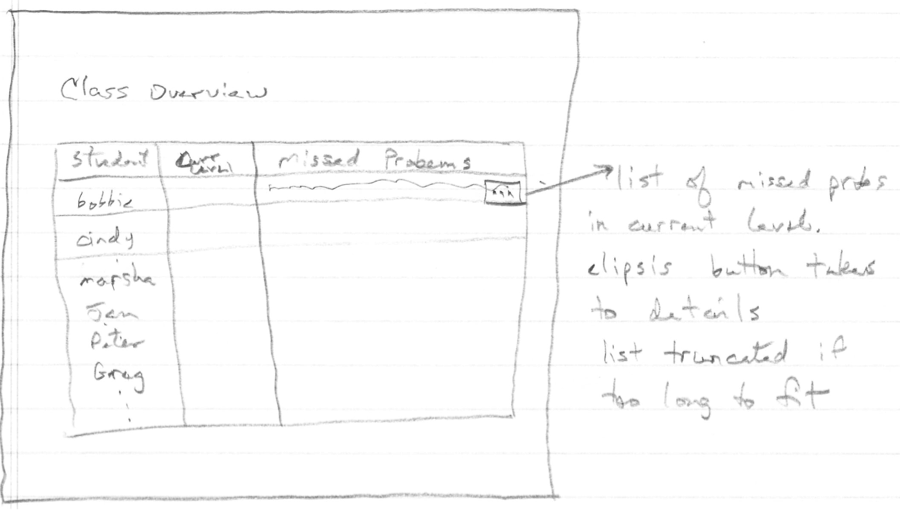 Class Overview
Student Curr Level Missed Probems
bobbie ...
cindy
marsha
Jan
Peter
Greg
list of missed probs
in current level.
elipsis button takes
to details
list truncated if
too long to fit